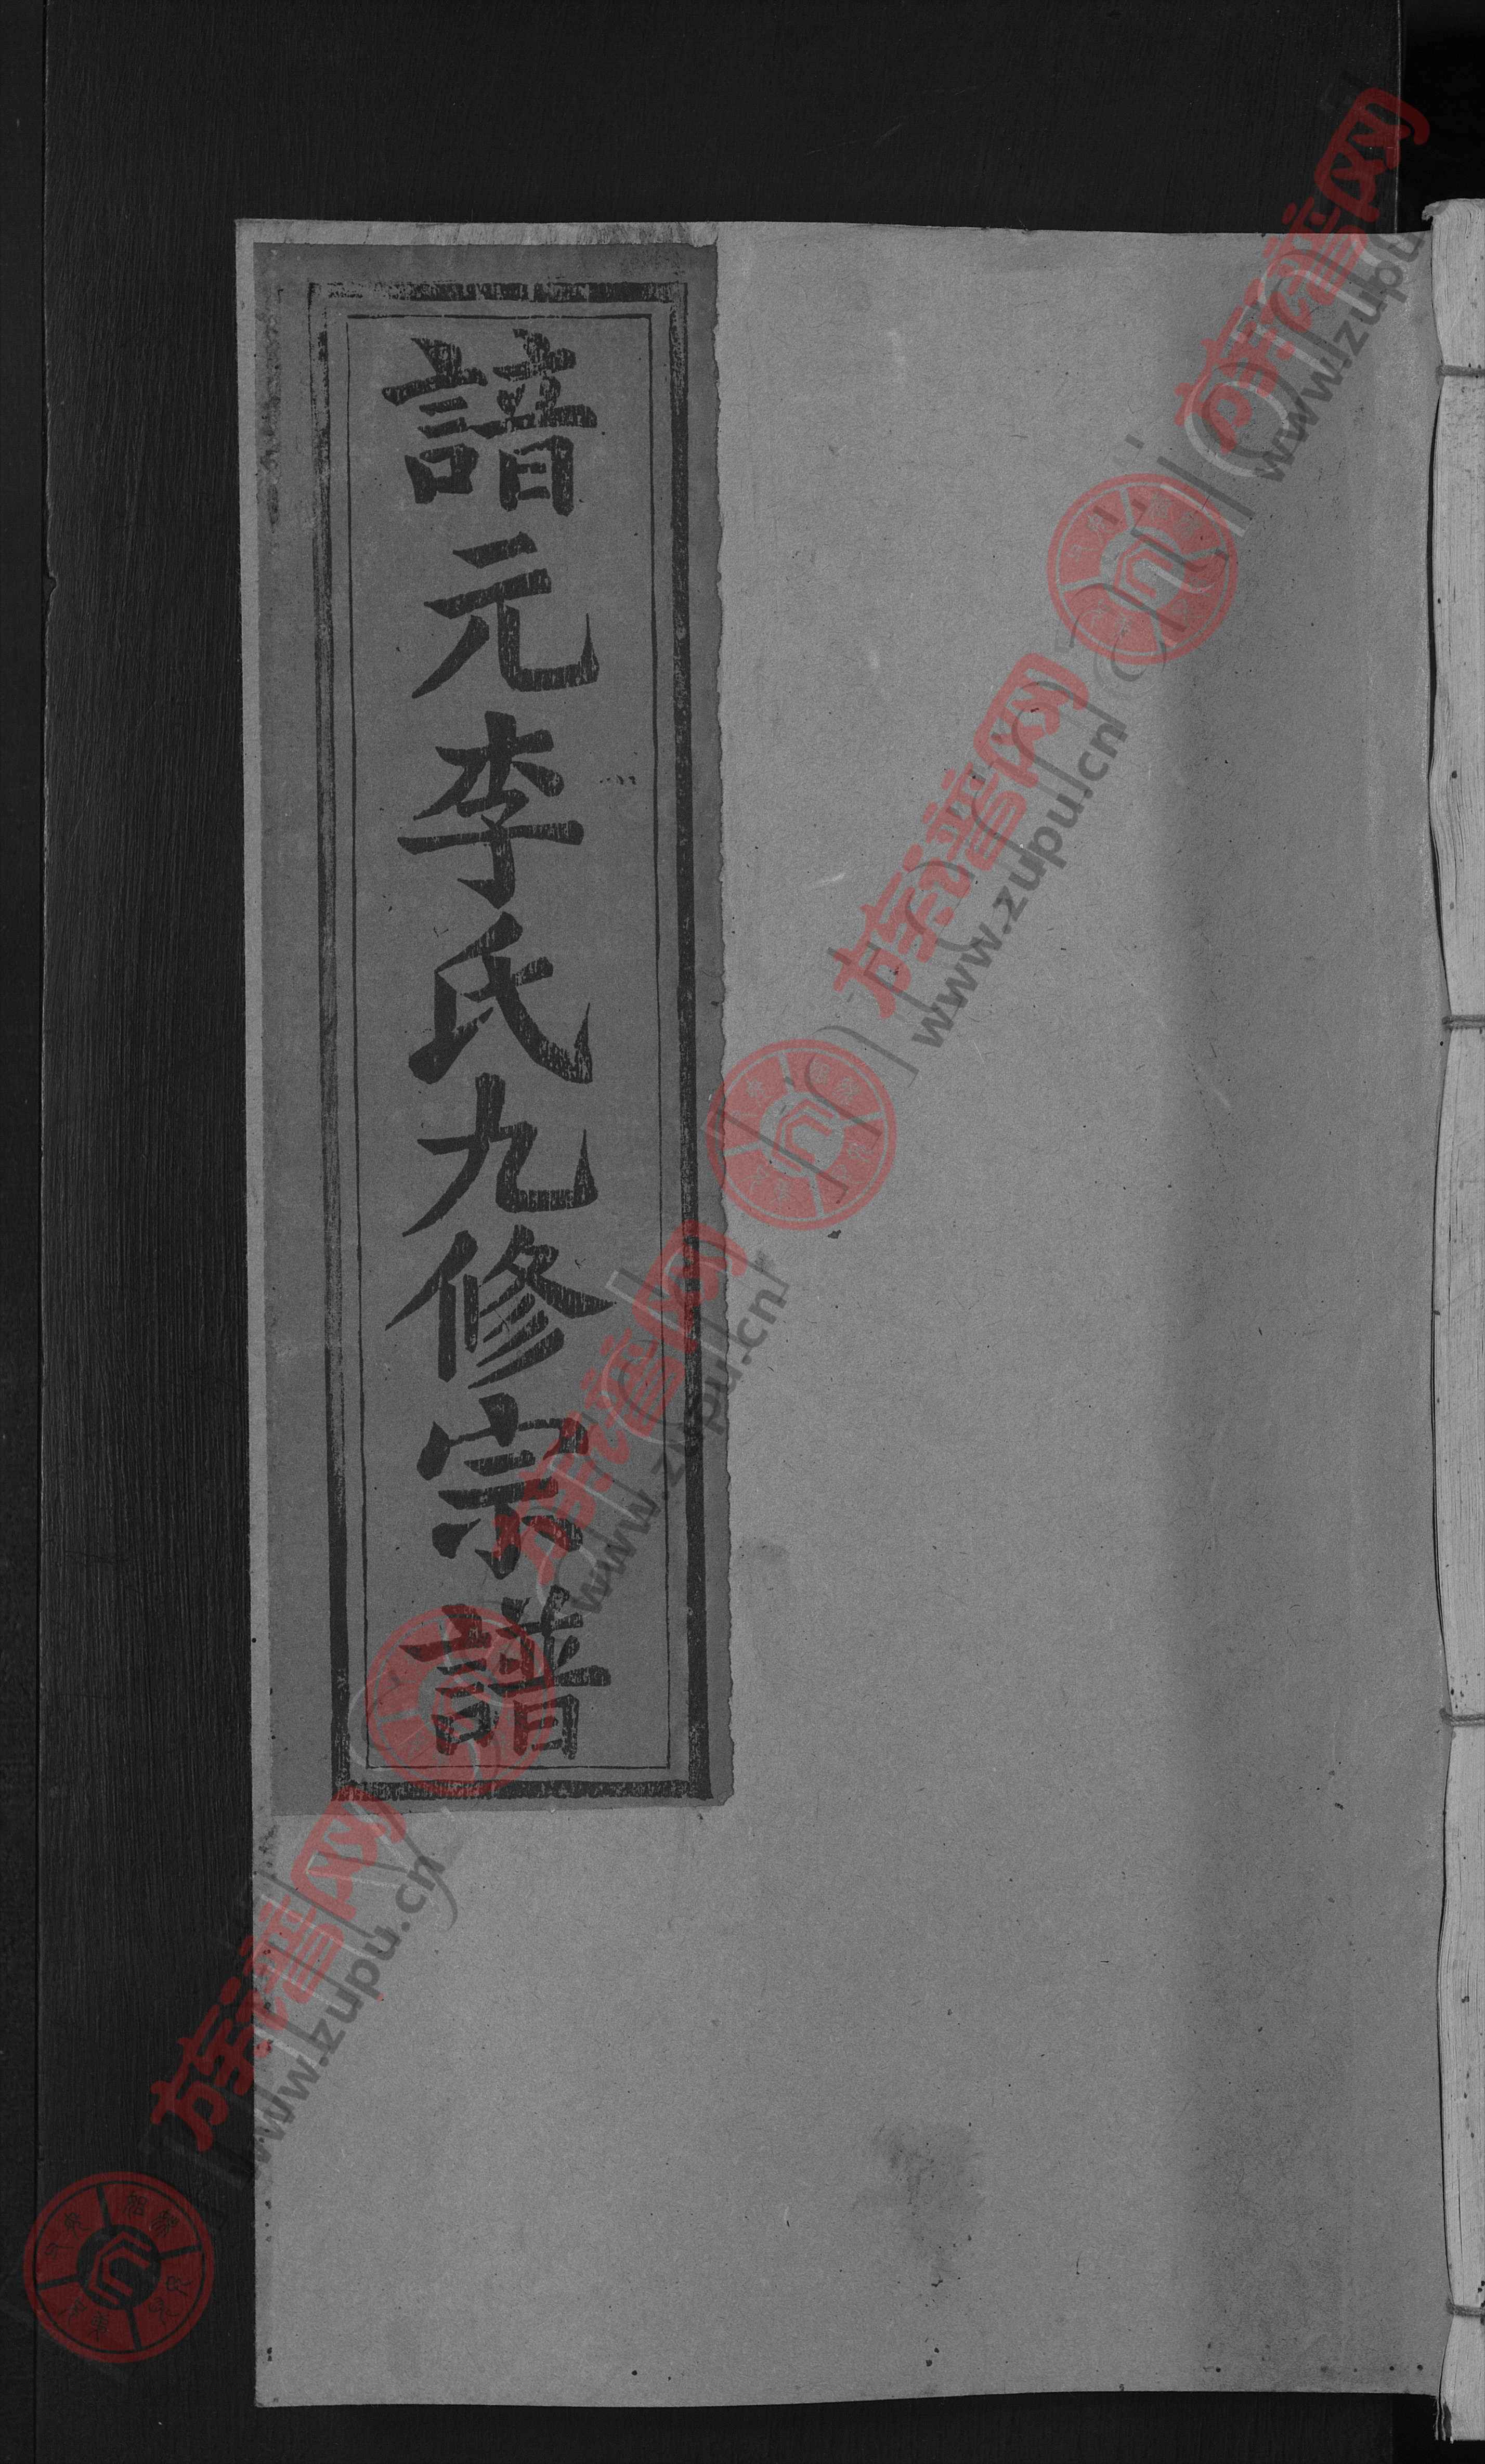 諳元李氏九修宗譜
族谱网
www.zupu.cn
族谱网
www.zupu.cn
族谱网
www.zupu.cn
族谱网
www.zupu.cn